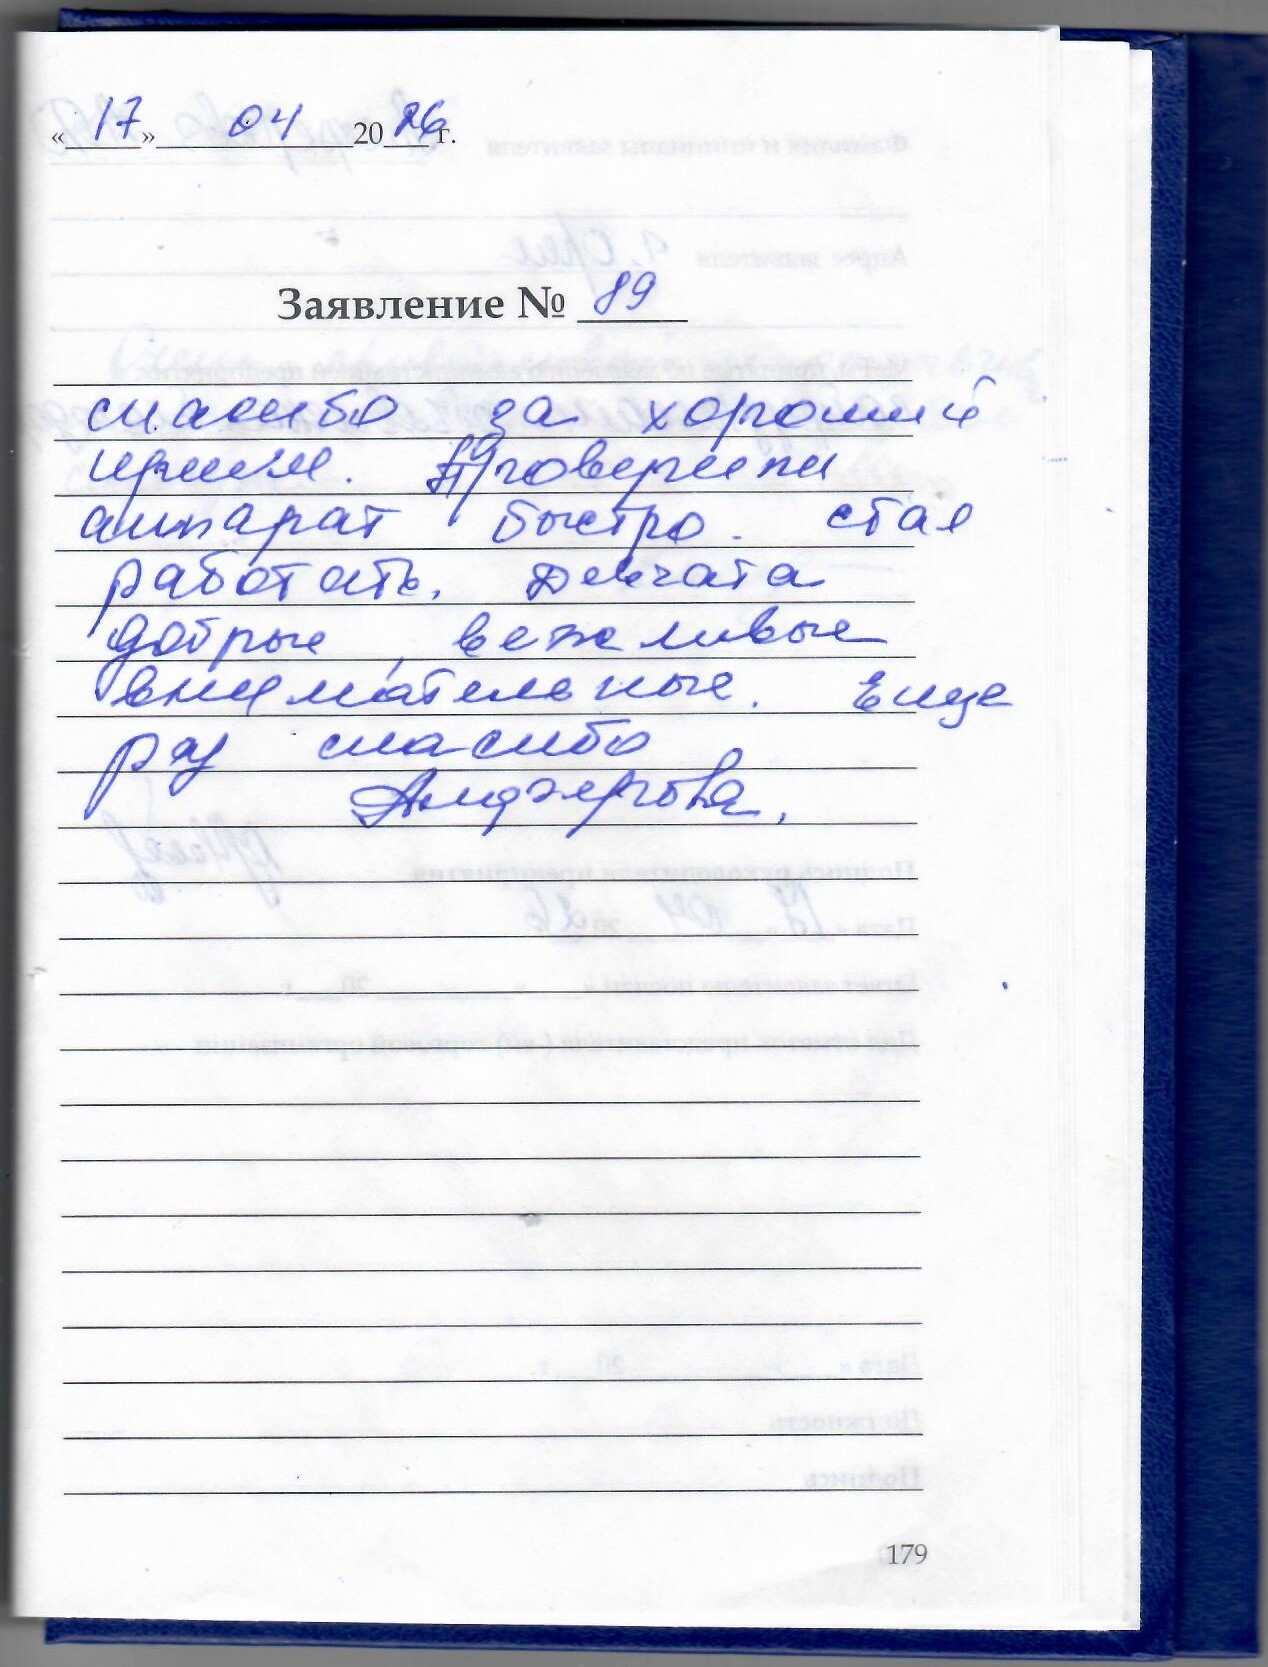 «17» 04 2026 г.
Заявление № 89
спасибо за хороший
приём. Проверили
аппарат быстро. стал
работать. Девчата
добрые, вежливые
внимательные. Еще
раз спасибо
179